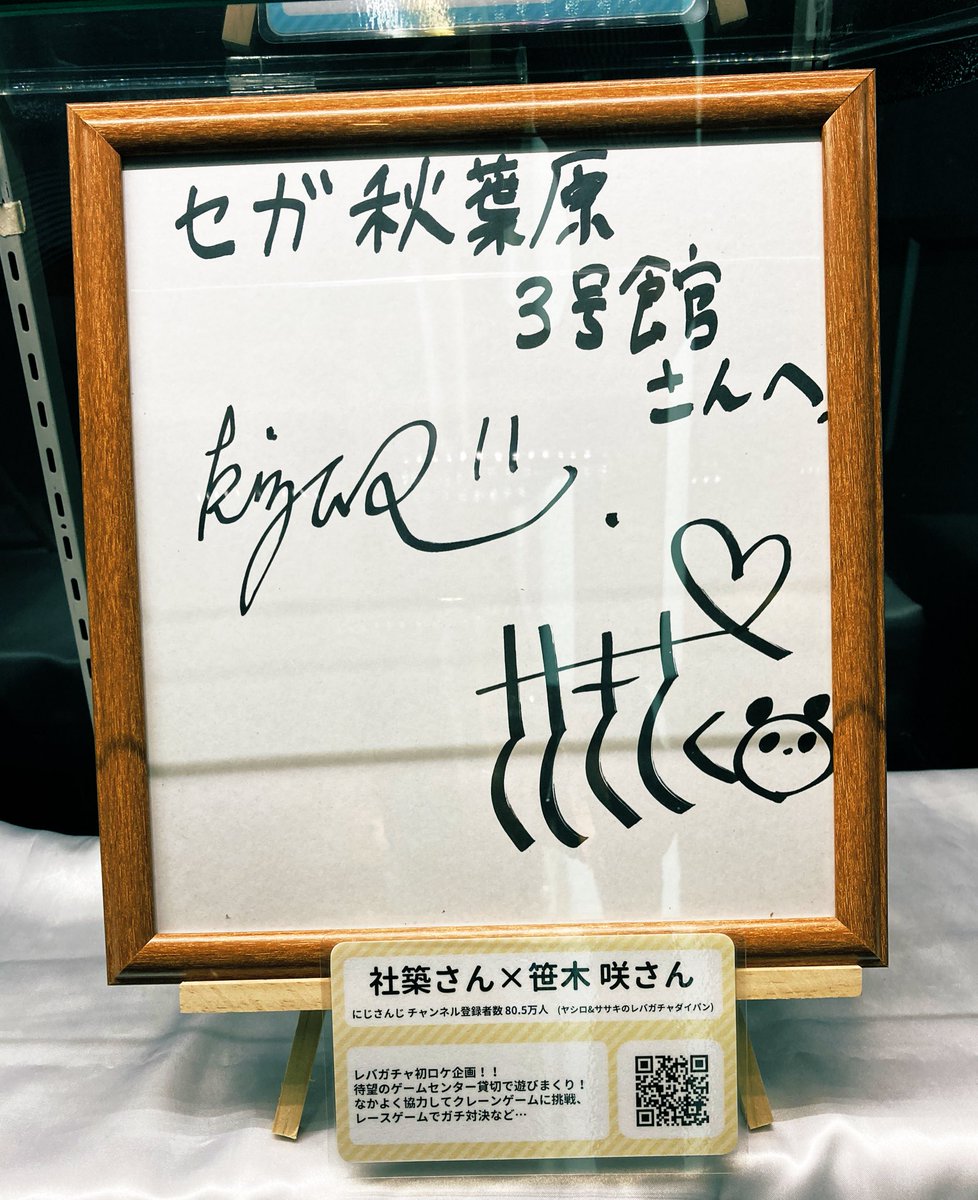 セガ秋葉原
3号館
さんへ
kizuku!!
ささきさく
社築さん×笹木 咲さん
にじさんじ チャンネル登録者数 80.5万人 (ヤシロ&ササキのレバガチャダイパン)
レバガチャ初ロケ企画!!
待望のゲームセンター貸切で遊びまくり!
なかよく協力してクレーンゲームに挑戦、
レースゲームでガチ対決など…